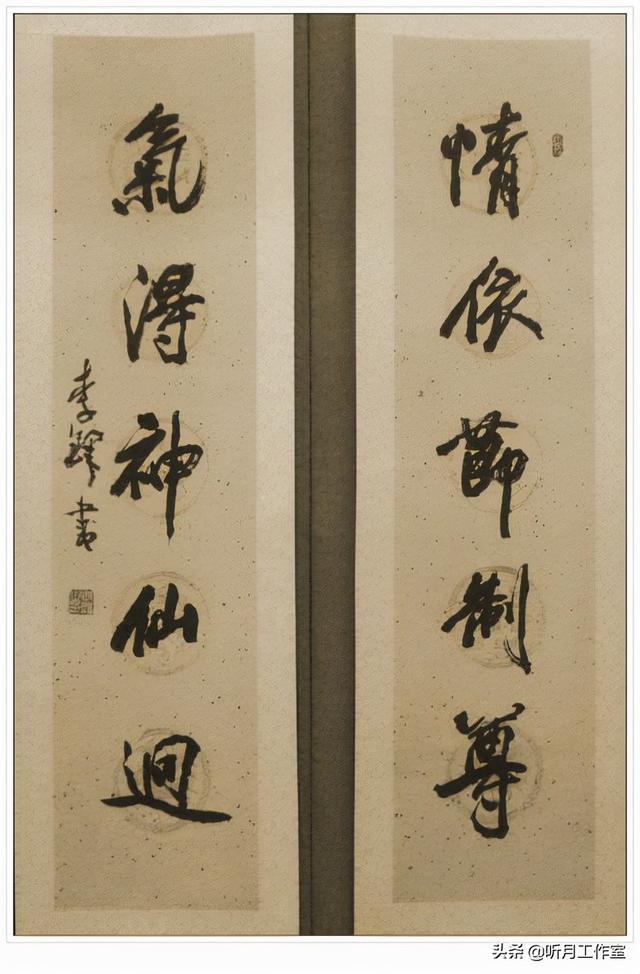 情依節制尊
氣得神仙逈
李鐸書
头条 @听月工作室